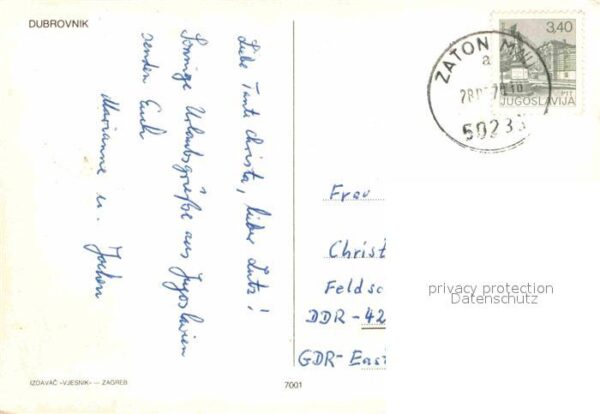 DUBROVNIK
Liebe Tante Christa, lieber Lutz!
Sonnige Urlaubsgrüße aus Jugoslawien
senden Euch
Marianne u. Jochen
IZDAVAČ «VJESNIK» — ZAGREB
7001
3,40
JUGOSLAVIJA
ZATON MALI
a
50233
Frau
Christ
Feldsc
DDR-42
GDR-Eas
privacy protection
Datenschutz